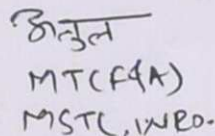 अतुल
MTC(F&A)
MSTC, WRO.